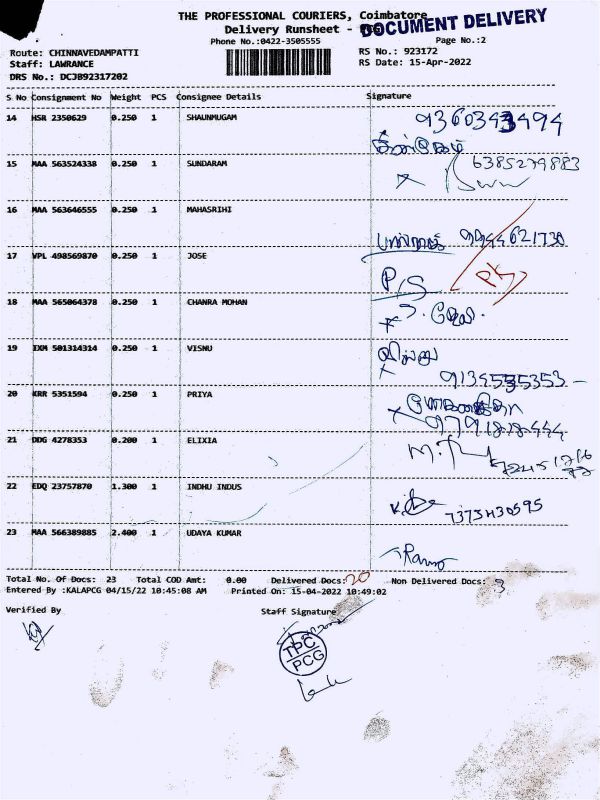 THE PROFESSIONAL COURIERS, Coimbatore
DOCUMENT DELIVERY
Delivery Runsheet -
Phone No.:0422-3505555
Page No.:2
Route: CHINNAVEDAMPATTI
RS No.: 923172
Staff: LAWRANCE
RS Date: 15-Apr-2022
DRS No.: DCJB92317202
S No Consignment No Weight PCS Consignee Details Signature
14 HSR 2350629 0.250 1 SHAUNMUGAM
15 MAA 563524338 0.250 1 SUNDARAM 6385279883
16 MAA 563646555 0.250 1 MAHASRIHI
17 VPL 498569870 0.250 1 JOSE P/S
18 MAA 565064378 0.250 1 CHANRA MOHAN
19 IXM 501314314 0.250 1 VISNU
20 KRR 5351594 0.250 1 PRIYA
21 DDG 4278353 0.200 1 ELIXIA
22 EDQ 23757870 1.300 1 INDHU INDUS 7373430595
23 MAA 566389885 2.400 1 UDAYA KUMAR
Total No. Of Docs: 23 Total COD Amt: 0.00 Delivered Docs: 20 Non Delivered Docs: 3
Entered By :KALAPCG 04/15/22 10:45:08 AM Printed On: 15-04-2022 10:49:02
Verified By Staff Signature
TPC
PCG